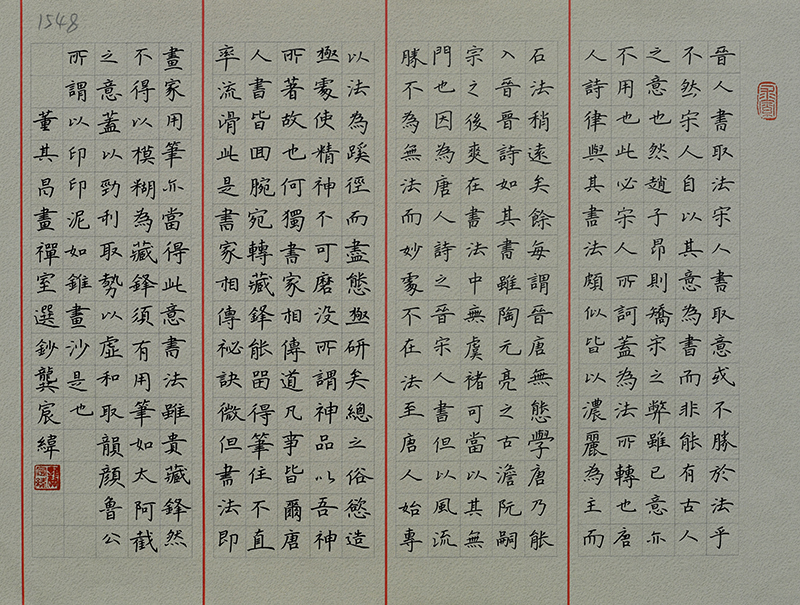 1548
晉人書取法宋人書取意或不勝於法乎
不然宋人自以其意為書而非能有古人
之意也然趙子昂則矯宋之弊雖已意亦
不用也此必宋人所訶蓋為法所轉也唐
人詩律與其書法頗似皆以濃麗為主而
石法稍遠矣餘每謂晉唐無態學唐乃能
入晉晉詩如其書雖陶元亮之古澹阮嗣
宗之後爽在書法中無虞褚可當以其無
門也因為唐人詩之晉宋人書但以風流
勝不為無法而妙處不在法至唐人始專
以法為蹊徑而盡態極研矣總之俗慾造
極處使精神不可磨没所謂神品以吾神
所著故也何獨書家相傳道凡事皆爾唐
人書皆回腕宛轉藏鋒能留得筆住不直
率流滑此是書家相傳祕訣微但書法即
畫家用筆亦當得此意書法雖貴藏鋒然
不得以模糊為藏鋒須有用筆如太阿截
之意蓋以勁利取勢以虛和取韻顏魯公
所謂以印印泥如錐畫沙是也
董其昌畫禪室選鈔龔宸緯